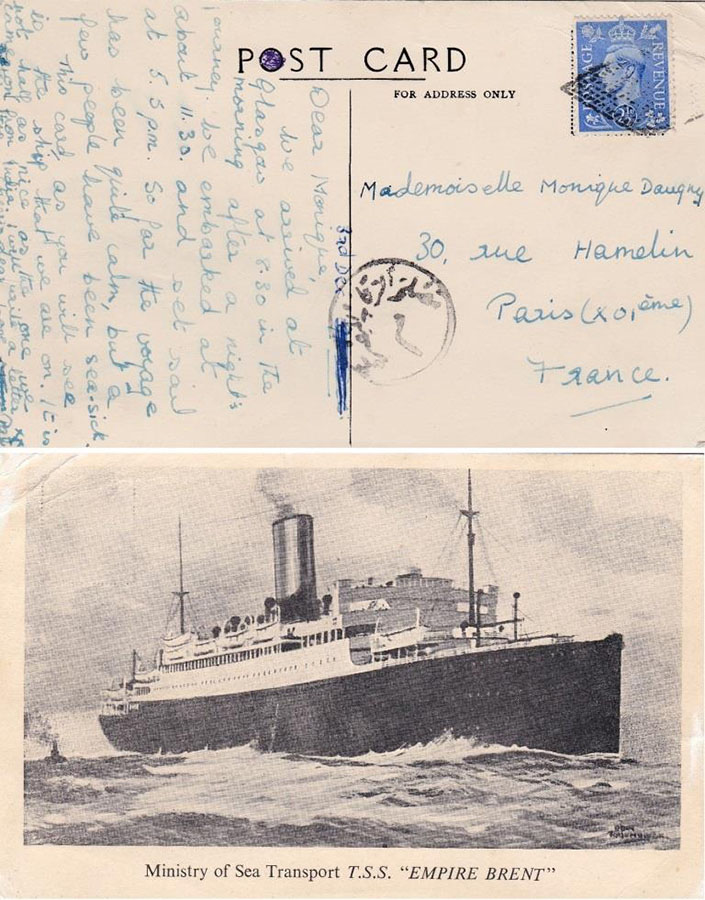 POST CARD
FOR ADDRESS ONLY
POSTAGE REVENUE
Mademoiselle Monique Daugny
30, rue Hamelin
Paris (XVIème)
France.
3rd Dec
Dear Monique,
We arrived at
Glasgow at 8.30 in the
morning after a night's
journey. We embarked at
about 11.30. and set sail
at 5.3 pm. So far the voyage
has been quite calm, but a
few people have been sea-sick.
This card as you will see
is the ship that we are on. It is
not half as nice as the one we
came on from India.
Ministry of Sea Transport T.S.S. "EMPIRE BRENT"